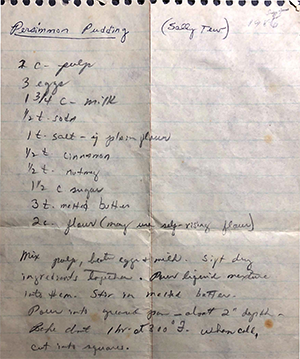 Persimmon Pudding (Sally Tew)
2 c - pulp
3 eggs
1 3/4 c - milk
1/2 t. soda
1 t - salt - if plain flour
1/2 t. cinnamon
1/2 t. nutmeg
1 1/2 c sugar
3 t. melted butter
2 c - flour (may use self-rising flour)
Mix pulp, beaten eggs & milk. Sift dry
ingredients together. Pour liquid mixture
into them. Stir in melted butter.
Pour into greased pan - about 2" depth.
Bake about 1 hr at 310° F. When cold,
cut into squares.